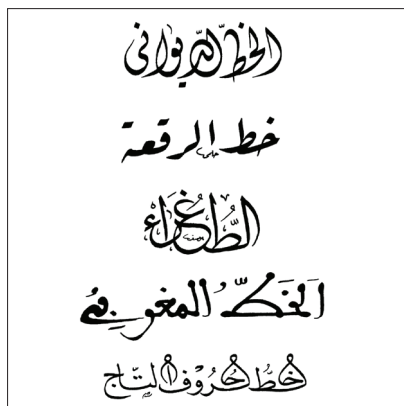 الخط الديواني
خط الرقعة
الطُّغْرَاء
الخَطّ المغربي
خَطُّ حُرُوفِ التّاج